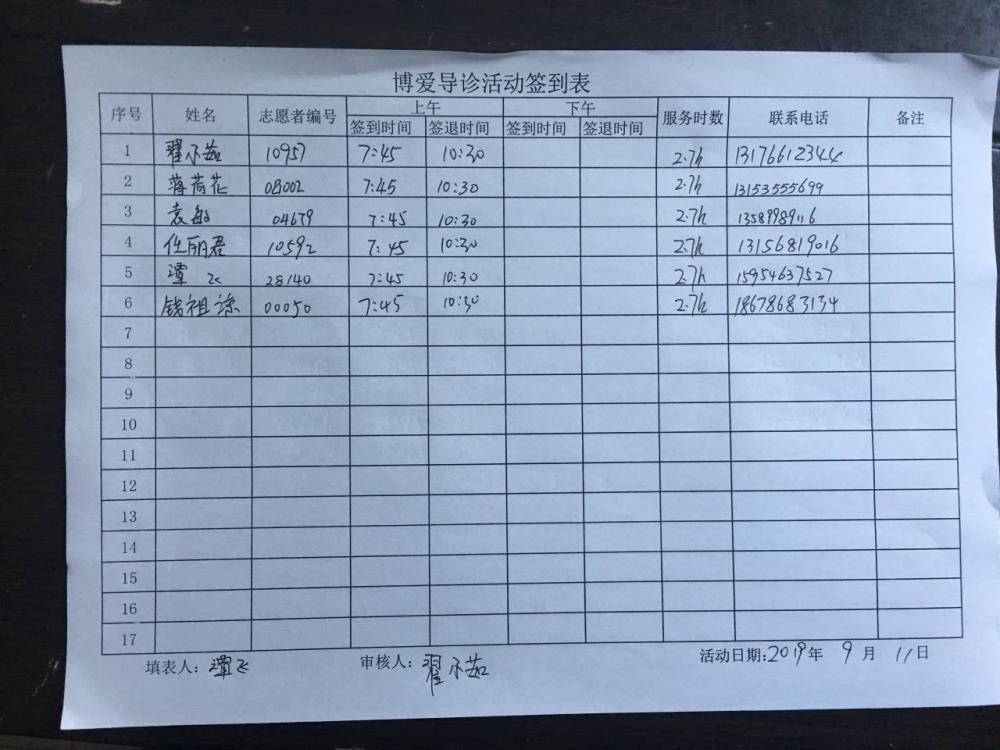 博爱导诊活动签到表
序号 姓名 志愿者编号 上午 下午 服务时数 联系电话 备注
签到时间 签退时间 签到时间 签退时间
1 翟尔茹 10957 7:45 10:30 2.7h 13176612344
2 薄荷花 08002 7:45 10:30 2.7h 13153555699
3 袁敏 04679 7:45 10:30 2.7h 13589989116
4 任丽君 10592 7:45 10:30 2.7h 13156819016
5 谭飞 28140 7:45 10:30 2.7h 15954637527
6 钱祖 00050 7:45 10:30 2.7h 18678683134
7
8
9
10
11
12
13
14
15
16
17
填表人:谭飞 审核人:翟尔茹 活动日期:2019年 9月 11日